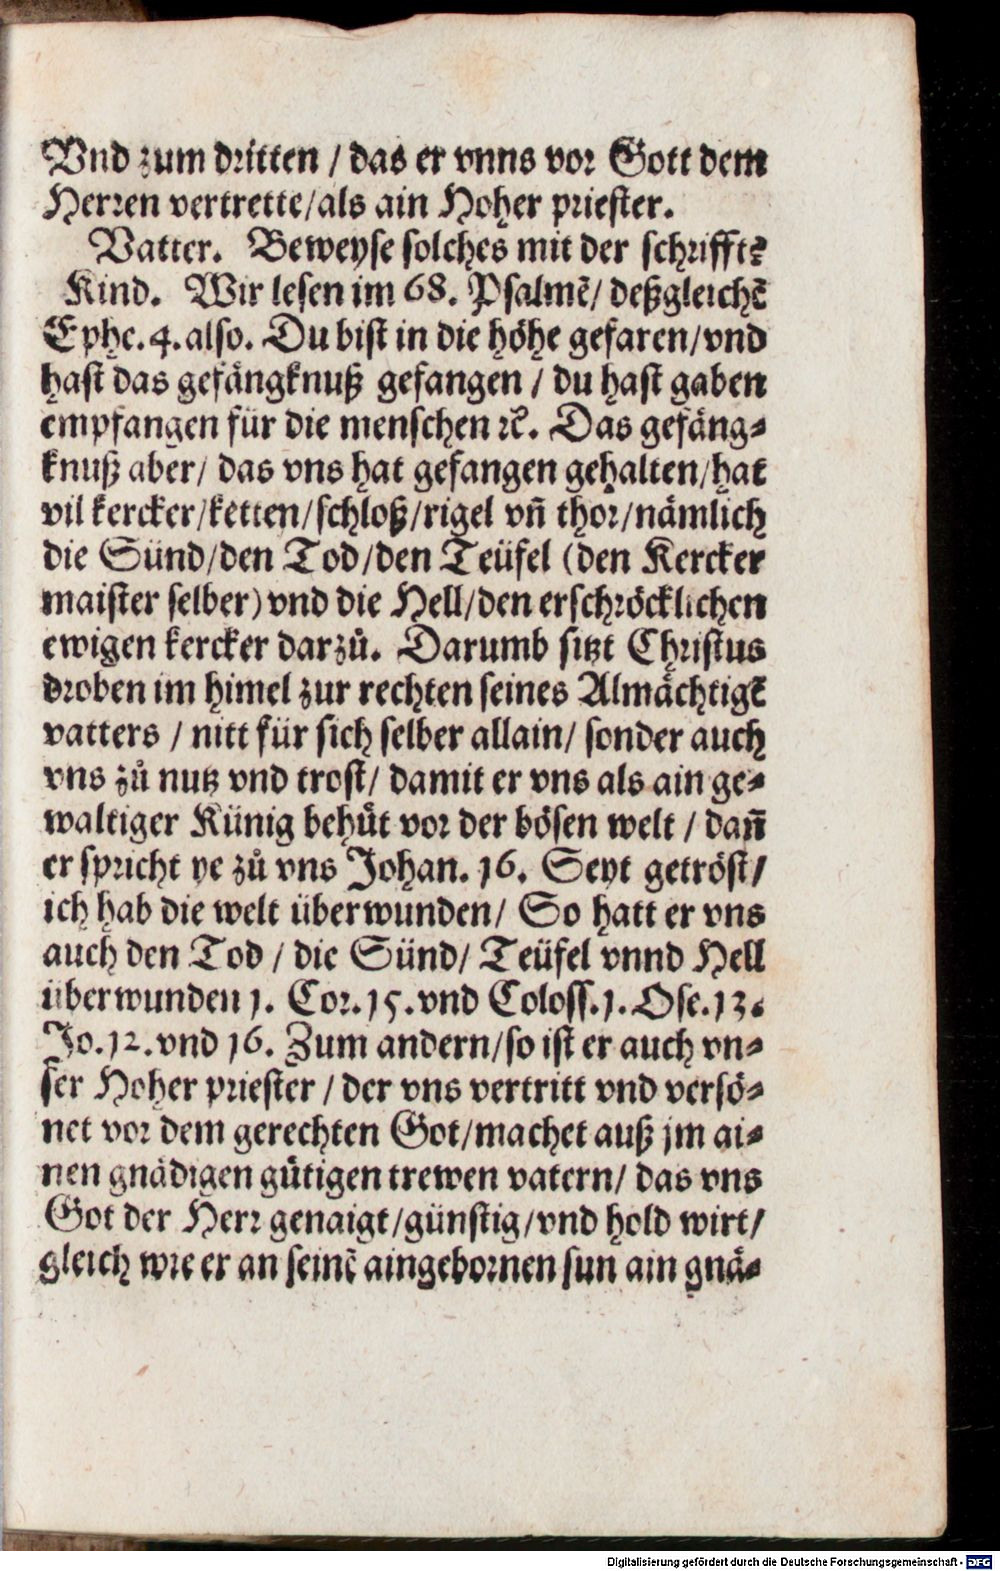 Vnd zum dritten / das er vnns vor Gott dem
Herren vertrette/als ain Hoher priester.
Vatter. Beweyse solches mit der schrifft?
Kind. Wir lesen im 68. Psalmē/ deßgleichē
Ephe. 4. also. Du bist in die höhe gefaren/vnd
hast das gefängknuß gefangen / du hast gaben
empfangen für die menschen ꝛc̄. Das gefäng⸗
knuß aber/ das vns hat gefangen gehalten/hat
vil kercker/ketten/schloß/rigel vn̄ thor/nämlich
die Sünd/den Tod/den Teüfel (den Kercker
maister selber) vnd die Hell/den erschröcklichen
ewigen kercker darzů. Darumb sitzt Christus
droben im himel zur rechten seines Almächtigē
vatters / nitt für sich selber allain/ sonder auch
vns zů nutz vnd trost/ damit er vns als ain ge⸗
waltiger Künig behüt vor der bösen welt / dañ
er spricht ye zů vns Johan. 16. Seyt getröst/
ich hab die welt überwunden/ So hatt er vns
auch den Tod / die Sünd/ Teüfel vnnd Hell
überwunden 1. Cor. 15. vnd Coloss. 1. Ose. 13.
Jo. 12. vnd 16. Zum andern/so ist er auch vn⸗
ser Hoher priester / der vns vertritt vnd versö⸗
net vor dem gerechten Got/machet auß jm ai⸗
nen gnädigen gütigen trewen vatern/ das vns
Got der Herr genaigt/günstig/vnd hold wirt/
gleich wie er an seinē aingebornen sun ain gnä⸗
Digitalisierung gefördert durch die Deutsche Forschungsgemeinschaft - DFG